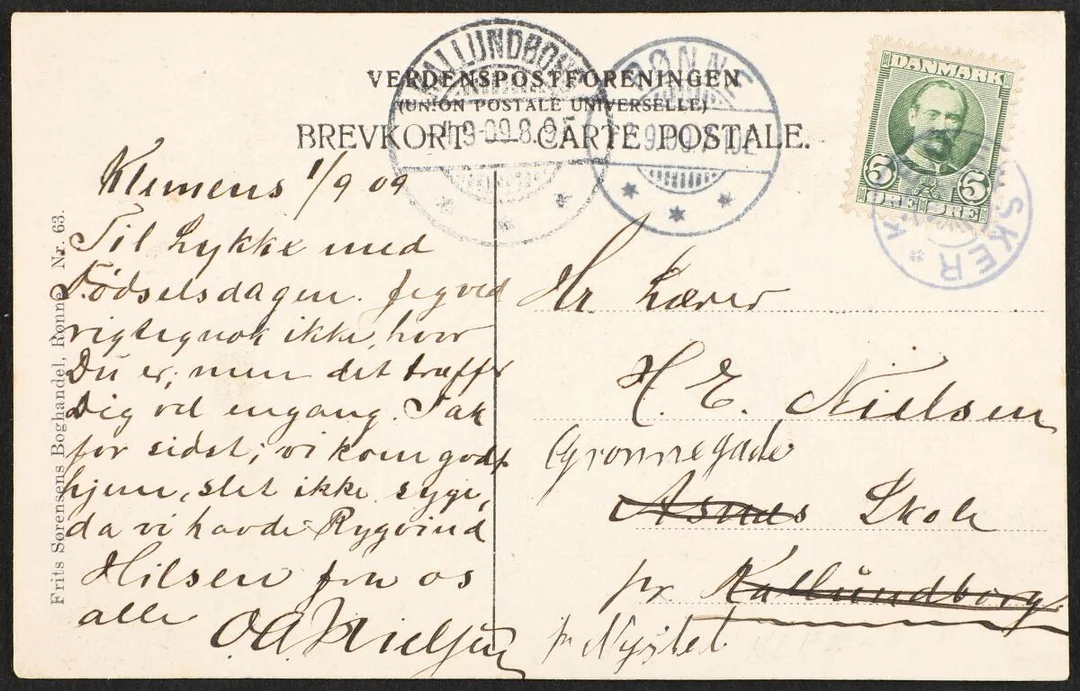 VERDENSPOSTFORENINGEN
(UNION POSTALE UNIVERSELLE)
BREVKORT — CARTE POSTALE.
KALLUNDBORG
9-09.8.
RØNNE
DANMARK
5 5
ØRE ØRE
KSKER
Klemens 1/9 09
Til Lykke med
Födselsdagen. Jeg ved
rigtignok ikke, hvor
Du er; men det træffer
Dig vel engang. Tak
for sidst; vi kom godt
hjem, slet ikke syge,
da vi havde Rygvind
Hilsen fra os
alle O.A. Nielsen
Hr Lærer
H. E. Nielsen
Grønnegade
Asnæs Skole
pr Kallundborg
pr Nysted
Frits Sørensens Boghandel, Rønne. Nr. 63.